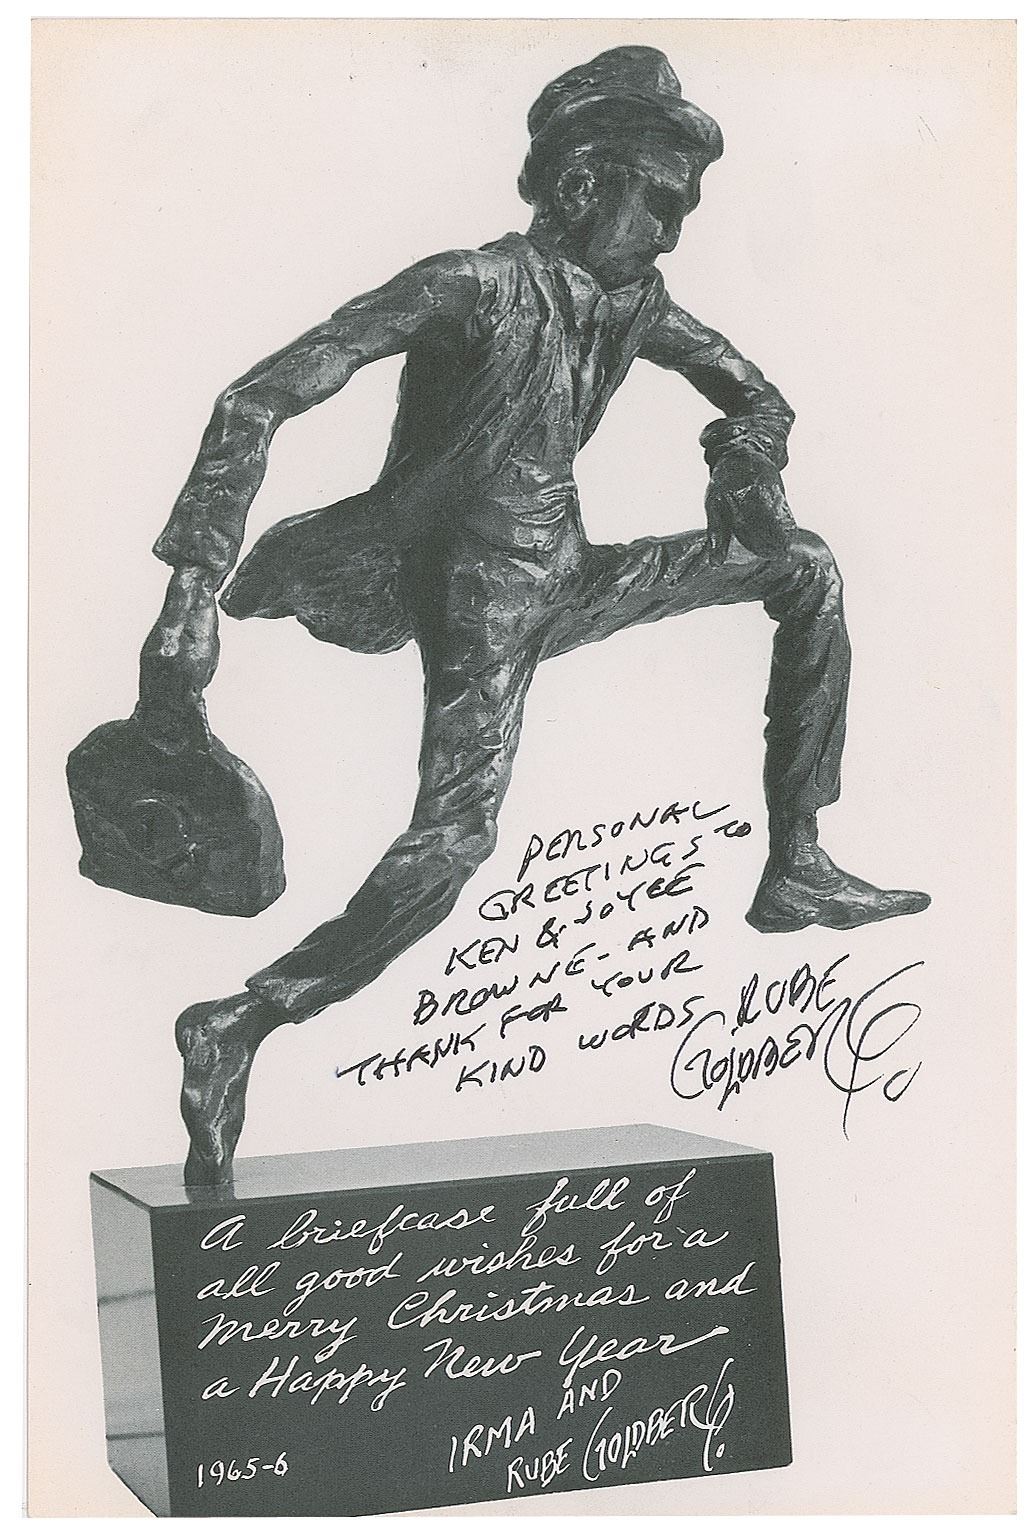 PERSONAL
GREETINGS TO
KEN & SOYEE
BROWNE - AND
THANK FOR YOUR
KIND WORDS
RUBE
GOLDBERG
A briefcase full of
all good wishes for a
Merry Christmas and
a Happy New Year
IRMA AND
RUBE GOLDBERG
1965-6